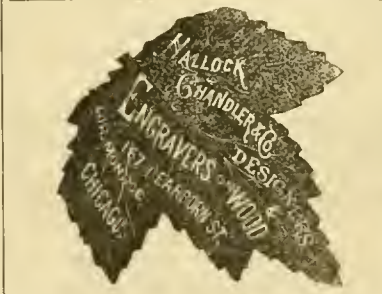 HALLOCK
CHANDLER & CO.
DESIGNERS &
ENGRAVERS ON WOOD
167 DEARBORN ST.
COR. MONROE
CHICAGO.